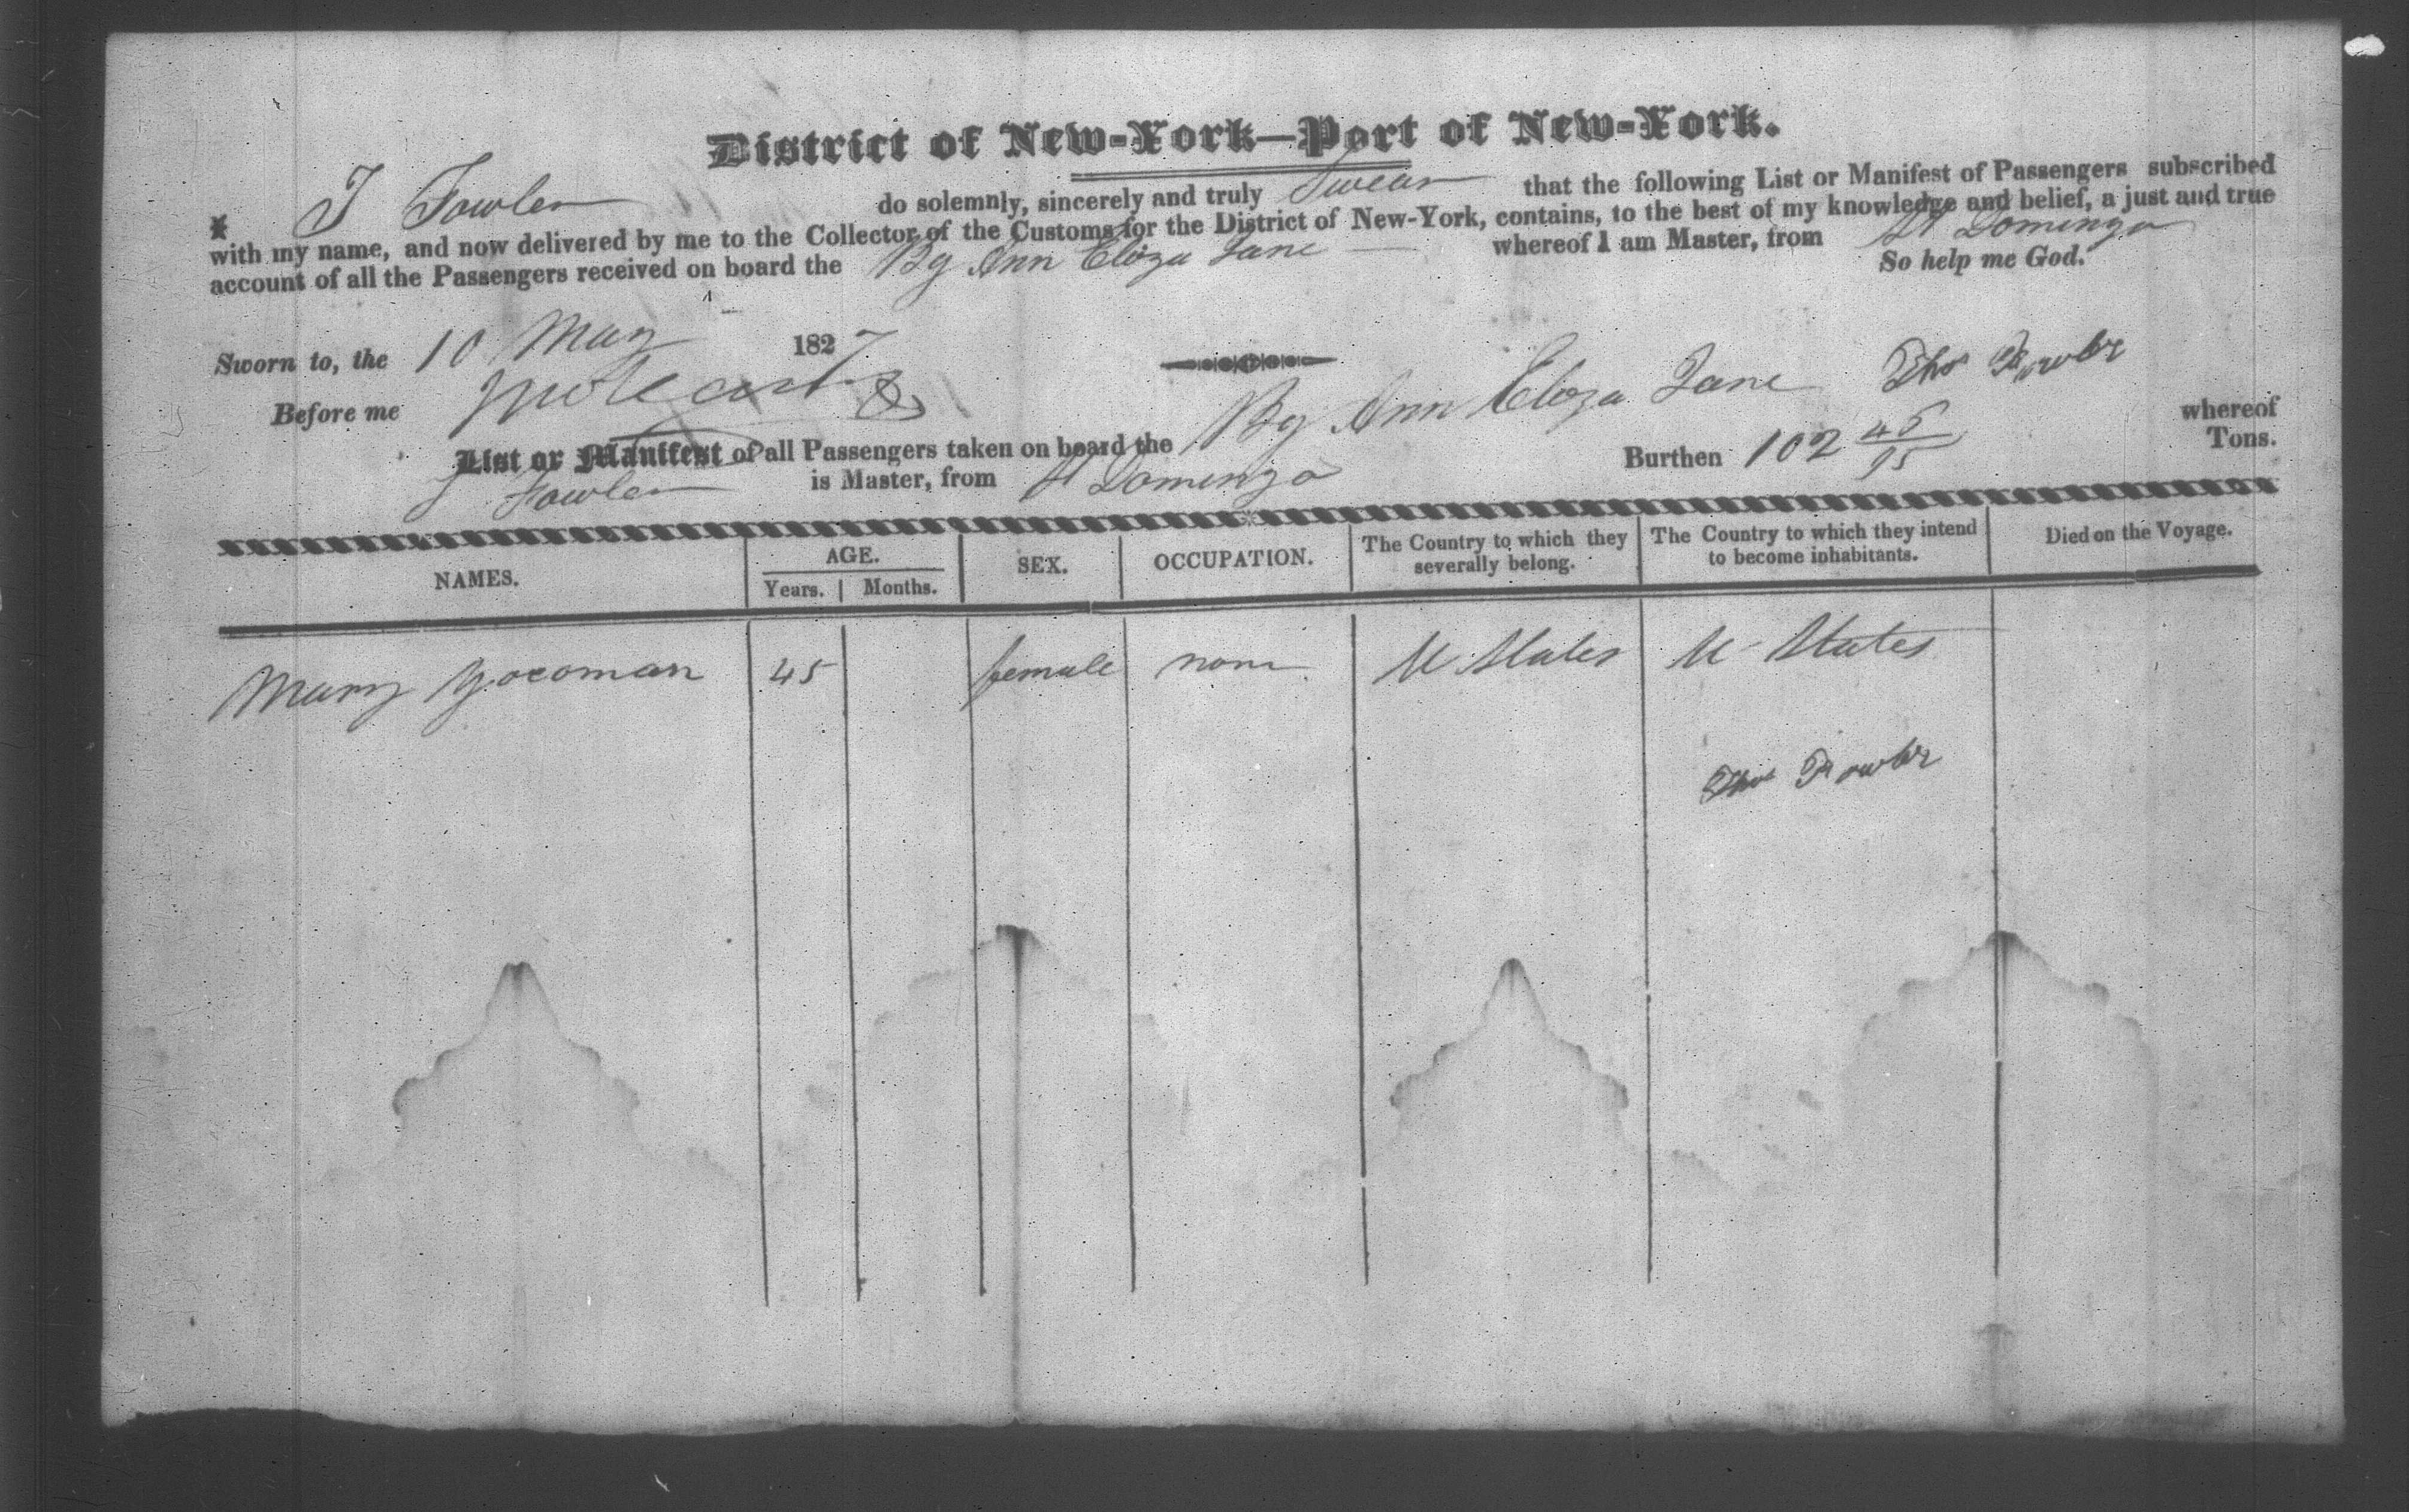 District of New-York—Port of New-York.
I T Fowler do solemnly, sincerely and truly Swear that the following List or Manifest of Passengers subscribed
with my name, and now delivered by me to the Collector of the Customs for the District of New-York, contains, to the best of my knowledge and belief, a just and true
account of all the Passengers received on board the Bg Ann Eliza Jane whereof I am Master, from St Domingo
So help me God.
Sworn to, the 10 May 1827
Before me
Thos Fowler
List or Manifest of all Passengers taken on board the Bg Ann Eliza Jane whereof
T Fowler is Master, from St Domingo Burthen 102 45/95 Tons.
NAMES. AGE. SEX. OCCUPATION. The Country to which they severally belong. The Country to which they intend to become inhabitants. Died on the Voyage.
Years. Months.
Mary Yocoman 45 female none U States U States
Thos Fowler